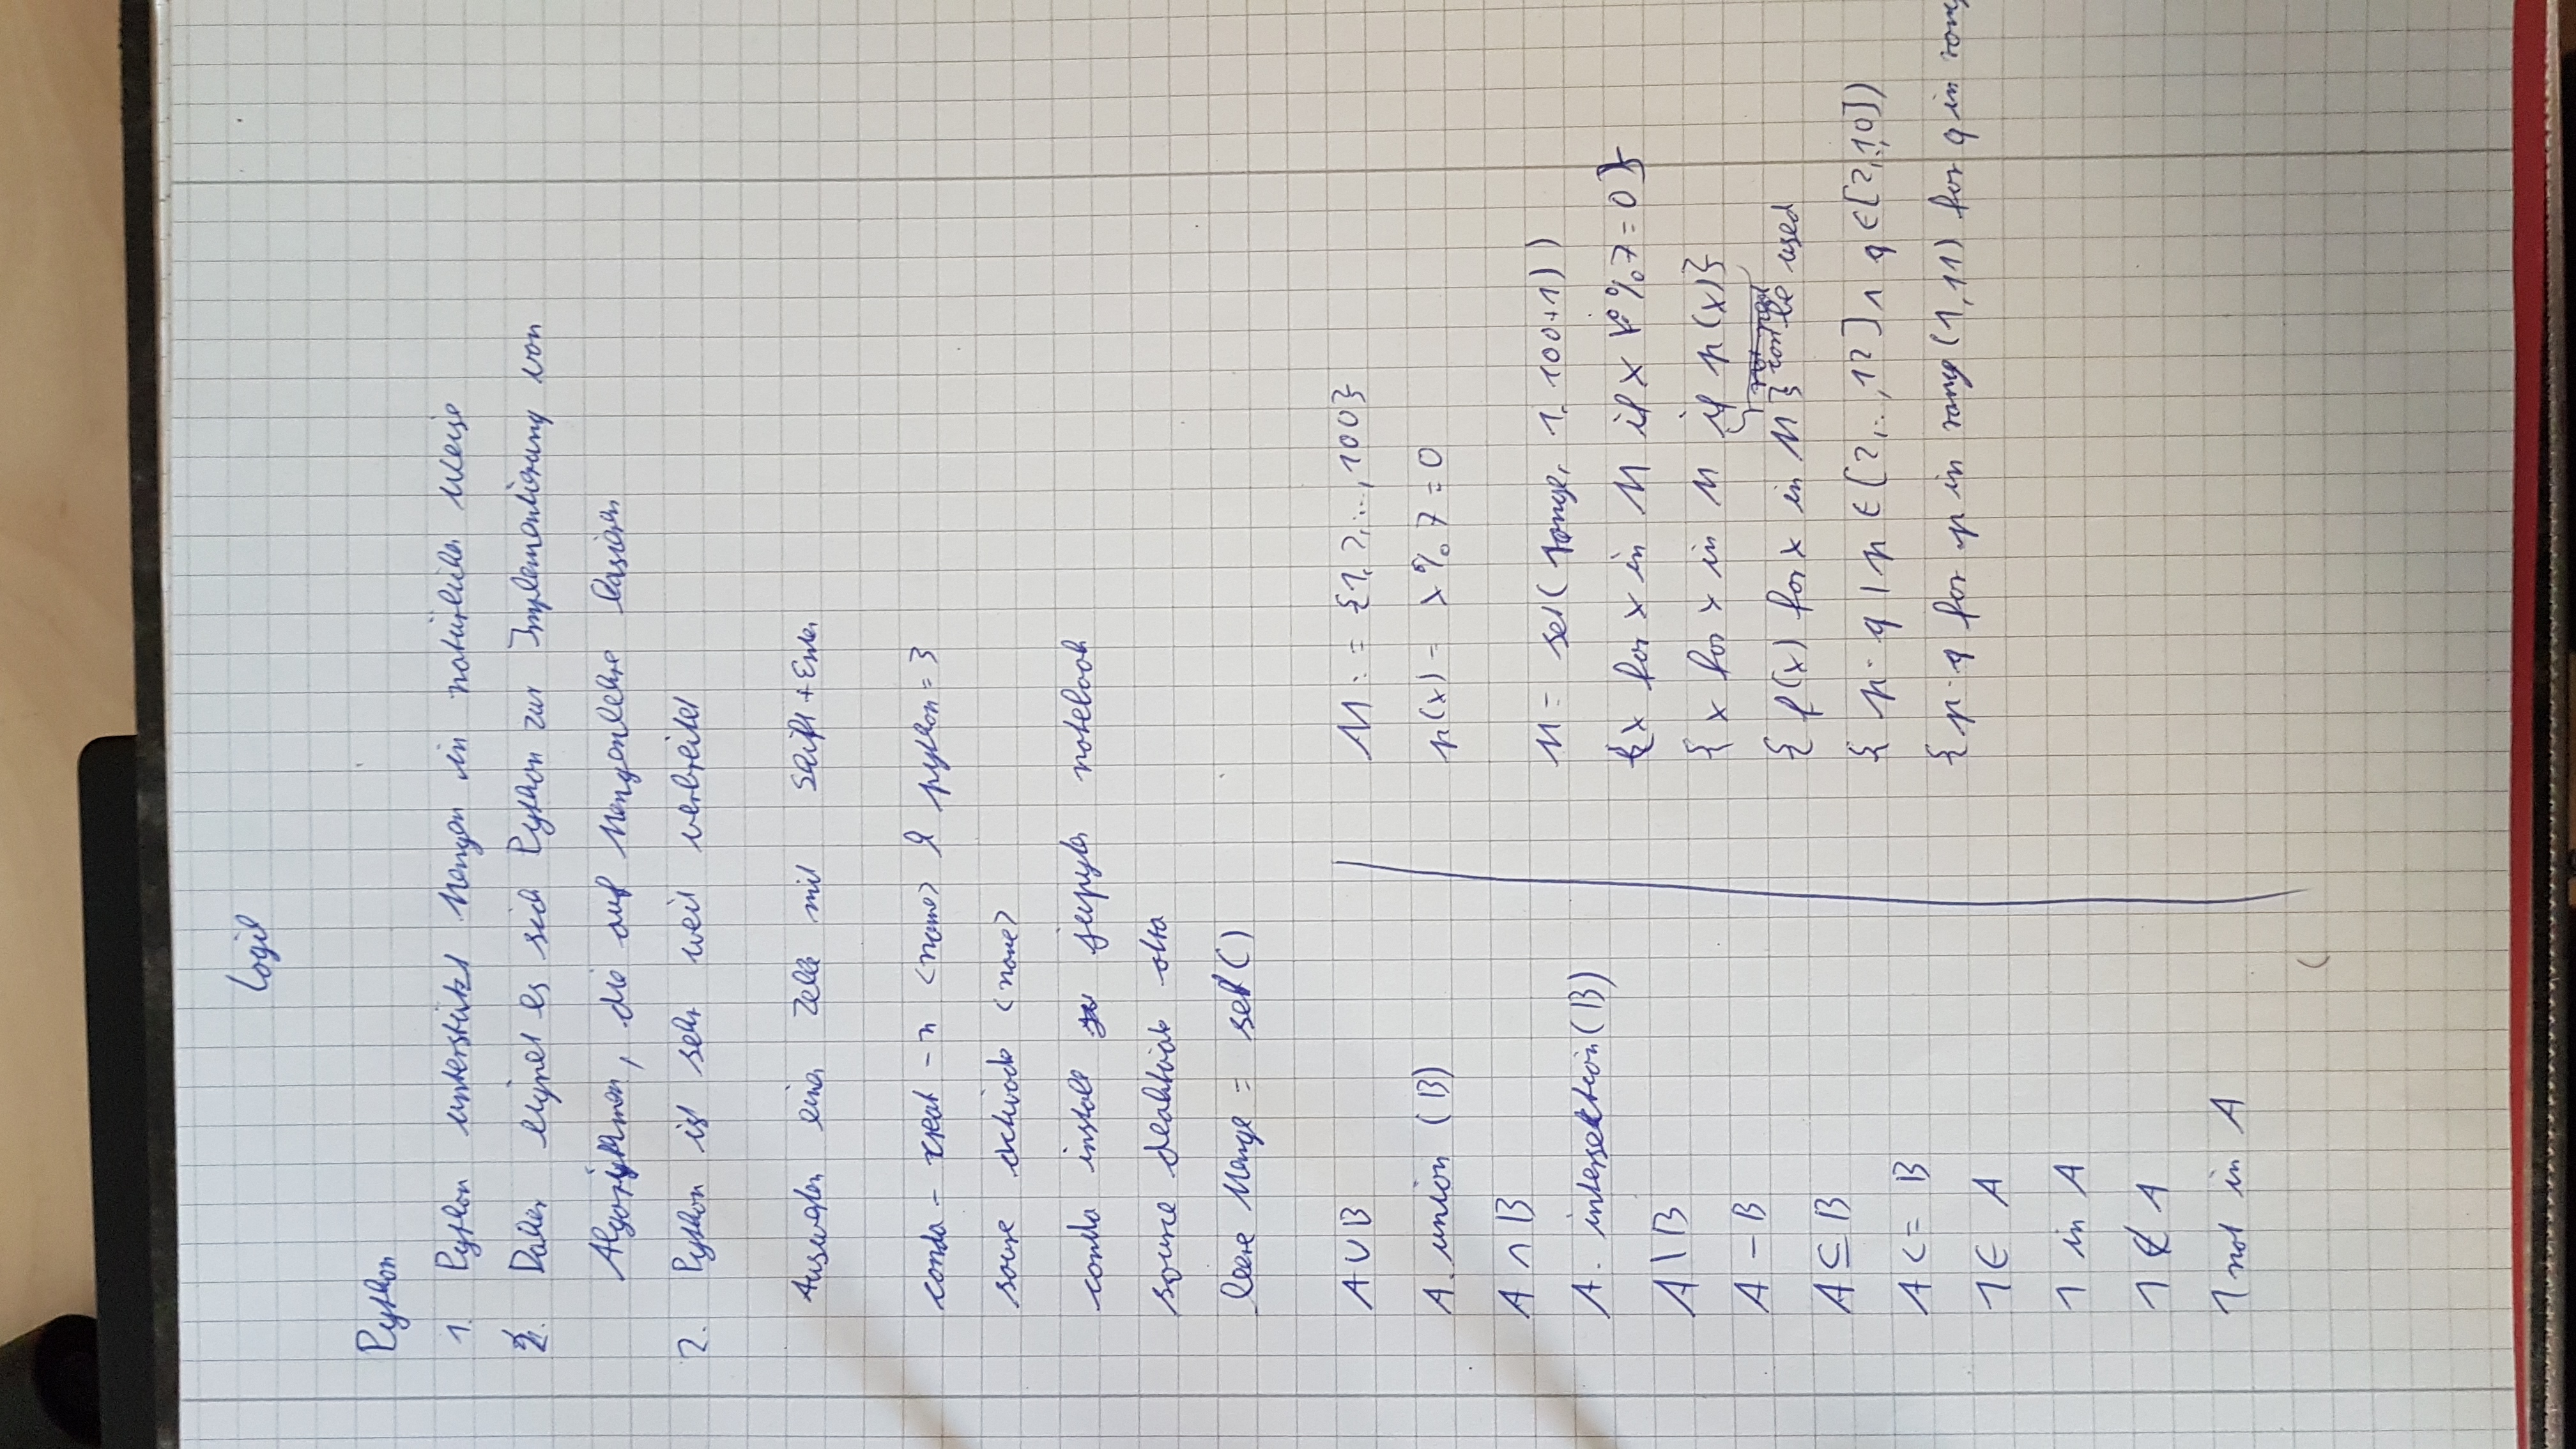 Logik
Python
1. Python unterstützt Mengen in natürlicher Weise
2. Daher eignet es sich Python zur Implementierung von
Algorithmen, die auf Mengenlehre basieren
2. Python ist sehr weit verbreitet
Auswahlen einer Zelle mit Shift+Enter
conda - creat -n <name> python=3
source activate <name>
conda install jupyter notebook
source deaktivate
leere Menge = set()
A ∪ B
A. union (B)
A ∩ B
A. intersektion(B)
A \ B
A - B
A ⊆ B
A <= B
1 ∈ A
1 in A
1 ∉ A
1 not in A
M := {1, 2, ..., 100}
p(x) = x % 7 = 0
M = set( range, 1, 100+1) )
{x for x in M if x % 7 = 0}
{ x for x in M if p(x)}
{ f(x) for x in M } be used
{ p · q | p ∈ [2,..,12] ∧ q ∈ [2,..,10])
{ p · q for p in rang (1,11) for q in rang